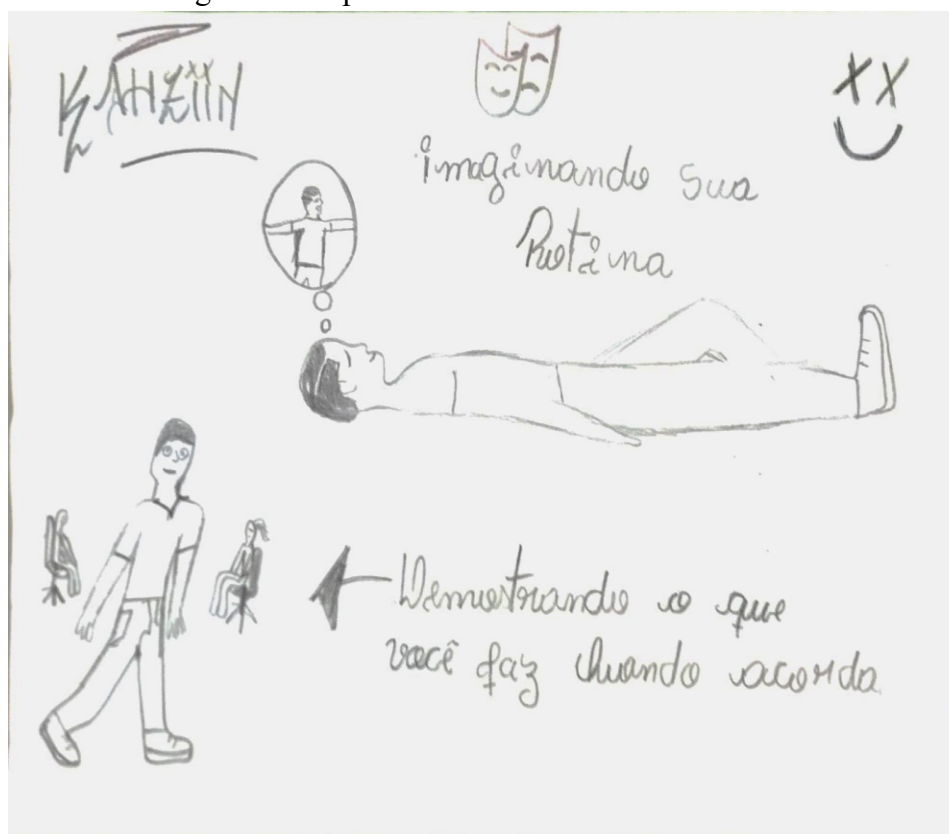 imaginando sua
Rotina
Demostrando o que
você faz Quando acorda